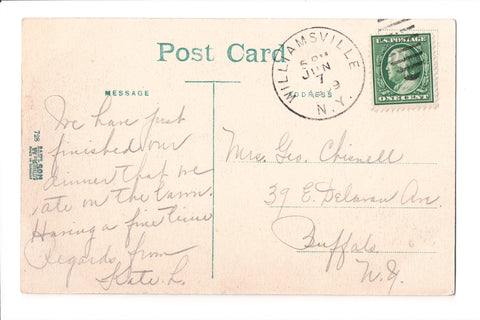 Post Card
WILLIAMSVILLE
JUN
7
N.Y.
U.S. POSTAGE
ONE CENT
MESSAGE
ADDRESS
We have just
finished our
dinner that we
ate on the lawn.
Having a fine time
Regards from
Kate L.
Mrs. Geo. Chisnell
39 E. Delavan Ave.
Buffalo
N.Y.
728